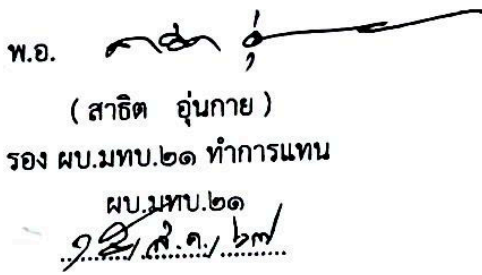 พ.อ.
( สาธิต อุ่นกาย )
รอง ผบ.มทบ.๒๑ ทำการแทน
ผบ.มทบ.๒๑
ส.ค./ ๖๗